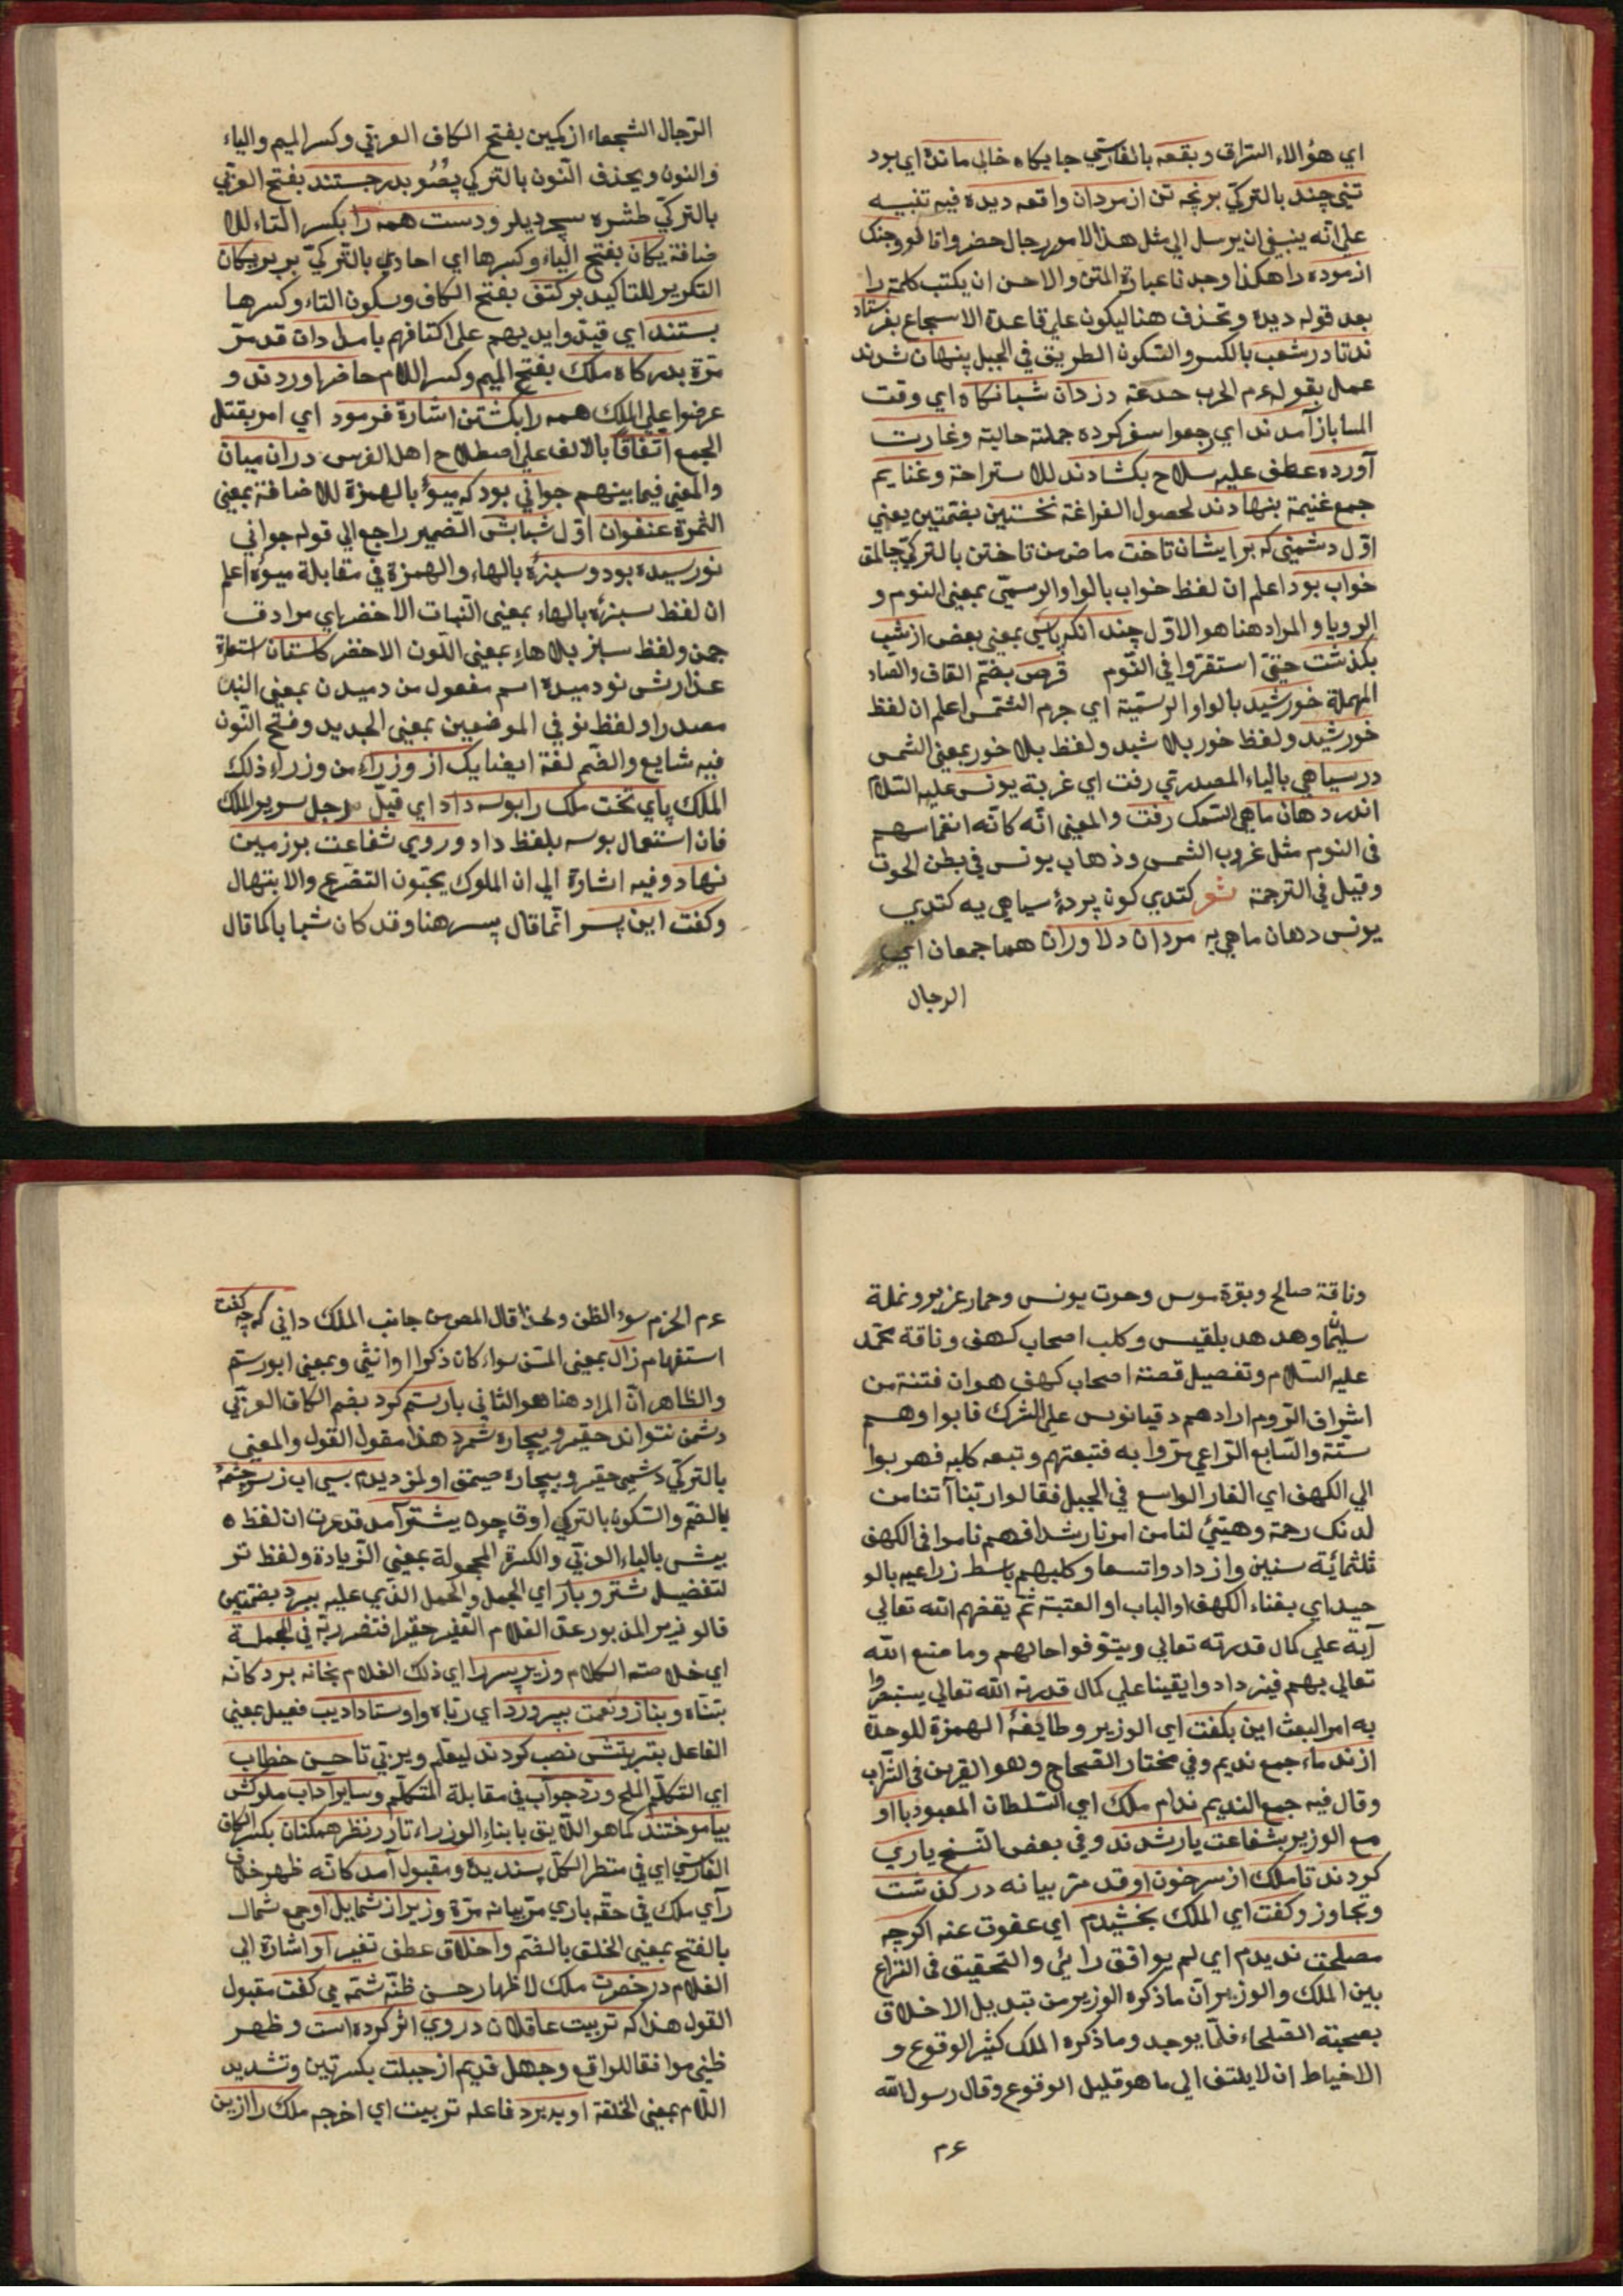 اي هؤالاء السراق وبقعه بالفارسي جايكاه خالي مانده اي بود
تني چند بالتركي برنچه تن از مردان واقعه ديده فيه تنبيه
علي انه ينبغي ان يرسل الي مثل هذا الامور رجال حضروا وجنك
ازموده را هكذا وجدنا عبارة المتن والاحسن ان يكتب كلمة را
بعد قوله ديده وتحذف هنا ليكون علي قاعدة الاسجاع بفرستاد
ند تا در شعب بالكسر والسكون الطريق في الجبل پنهان شدند
عمل بقوله عم الحرب خدعة دزدان شبانكاه اي وقت
المسا باز آمدند اي رجعوا سفر كرده جملة حالية وغارت
آورده عطف عليه سلاح بكشادند للاستراحة وغنايم
جمع غنيمة بنهادند لحصول الفراغة نخستين بفتحتين يعني
اول دشمني كه بر ايشان تاخت ماض من تاختن بالتركي چالمق
خواب بود اعلم ان لفظ خواب بالواو الرسمي بمعني النوم و
الرويا والمراد هنا هو الاول چندانكه پاسي بمعني بعض از شب
بكذشت حتي استقروا في النوم قرص بضم القاف والصاد
المهملة خورشيد بالواو الرسمية اي جرم الشمس اعلم ان لفظ
خورشيد ولفظ خور بلا شيد ولفظ بلا خور بمعني الشمس
در سياهي بالياء المصدري رفت اي غربة يونس عليه السلام
اندر دهان ماهي السمك رفت والمعني انه كانه انغماسهم
في النوم مثل غروب الشمس وذهاب يونس في بطن الحوت
وقيل في الترجمة شعر كتدي كون پردۀ سياهي يه كتدي
يونس دهان ماهي يه مردان دلاوران هماجمعان اي
الرجال
الرجال الشجعاء از كمين بفتح الكاف العربي وكسر الميم والياء
والنون ويحذف النون بالتركي پصو بدر جستند بفتح العربي
بالتركي طشره سچرديلر ودست همه را بكسر التاء للا
ضافة يكان بفتح الياء وكسرها اي احادي بالتركي بربر يكان
التكرير للتاكيد بر كتف بفتح الكاف وسكون التاء وكسرها
بستند اي قيدوا ايديهم علي اكتافهم بامدادان قد مر
مرة بدركاه ملك بفتح الميم وكسر اللام حاضر اوردند و
عرضوا علي الملك همه را بكشتن اشارة فرمود اي امر بقتل
الجمع اتفاقا بالالف علي اصطلاح اهل الفرس دران ميان
والمعني فيما بينهم جواني بود كه ميوۀ بالهمزة للاضافة بمعني
الثمرة عنفوان اول شبابش الضمير راجع الي قوله جواني
نورسيده بود وسبزۀ بالهاء والهمزة في مقابلة ميوۀ اعلم
ان لفظ سبزۀ بالهاء بمعني النبات الاخضر اي مرادف
چمن ولفظ سبز بلا هاء بمعني اللون الاخضر كلستان استعارة
عذارش نو دميده اسم مفعول من دميدن بمعني النبت
مصدرا ولفظ نو في الموضعين بمعني الجديد وفتح النون
فيه شايع والضم لغة ايضا يك از وزراء من وزراء ذلك
الملك پاي تخت ملك را بوسه داد اي قبل رجل سرير الملك
فان استعمال بوسه بلفظ داد وروي شفاعت بر زمين
نهاد وفيه اشارة الي ان الملوك يحبون التضرع والابتهال
وكفت اين پسر انما قال پسر هنا وقد كان شبابا كما قال
وناقة صالح وبقرة موسي وحوت يونس وحمار عزير ونملة
سليمان وهدهد بلقيس وكلب اصحاب كهف وناقة محمد
عليه السلام وتفصيل قصة اصحاب كهف هو ان فتنة من
اشراف الروم ارادهم دقيانوس علي الشرك فابوا وهم
ستة والسابع الراعي مروا به فتبعتهم وتبعه كلبه فهربوا
الي الكهف اي الغار الواسع في الجبل فقالوا ربنا آتنا من
لدنك رحمة وهيئ لنا من امرنا رشدا فهم ناموا في الكهف
ثلثمائة سنين وازدادوا تسعا وكلبهم باسط زراعيه بالو
صيد اي بفناء الكهف او الباب او العتبة ثم يقظهم الله تعالي
آية علي كمال قدرته تعالي ويتوفوا حالهم وما صنع الله
تعالي بهم فيزدادوا يقينا علي كمال قدرة الله تعالي يستبصروا
به امر البعث اين بكفت اي الوزير وطايفۀ الهمزة للوحدة
از ندماء جمع نديم وفي مختار الصحاح وهو القرين في الشراب
وقال فيه جمع النديم ندام ملك اي السلطان المعبود با او
مع الوزير بشفاعت يار شدند وفي بعض النسخ ياري
كردند تا ملك از سر خون او قد مر بيانه در كذشت
وتجاوز وكفت اي الملك بخشيدم اي عفوت عنه اكرچه
مصلحت نديدم اي لم يوافق رائي والتحقيق في النزاع
بين الملك والوزير ان ما ذكره الوزير من تبديل الاخلاق
بصحبة الصلحاء قلما يوجد وما ذكره الملك كثير الوقوع و
الاحتياط ان لا يلتفت الي ما هو قليل الوقوع وقال رسول الله
عم
عم الحزم سوء الظن ولهذا قال المص من جانب الملك داني كه چه كفت
استفهام زال بمعني المسن سواء كان ذكرا او انثي وبمعني ابو رستم
والظاهر ان المراد هنا هو الثاني با رستم كرد بضم الكاف العربي
دشمن نتوان حقير وبيچاره شمرد هذا مقول القول والمعني
بالتركي دشمني حقير وبيچاره صيمق اولمز ديدم بسي اب ز سر چشمۀ
بالضم والسكون بالتركي اوق چون بيشتر آمد قد عرفت ان لفظ
بيش بالباء العربي والكسرة المجهولة بمعني الزيادة ولفظ تر
لتفضيل شتر وبار اي الجمل والحمل الذي عليه ببرد بفتحتين
قالو وزير المذبور عد الغلام الفقير حقيرا فتضرر به في الجملة
اي خلاصة الكلام وزير پسر را اي ذلك الغلام بخانه برد كانه
تبناه وبناز ونعمت بپرورد اي رباه واوستاد اديب فعيل بمعني
الفاعل بتربيتش نصب كردند ليعلم ويربي تا حسن خطاب
اي التكلم الملح ورد جواب في مقابلة المتكلم وساير آداب ملوكش
بياموختند كما هو اللايق بابناء الوزراء تا در نظر همكنان بكسر الكاف
الفارسي اي في منظر الكل پسنديده ومقبول آمد كانه ظهر خلاف
رآي ملك في حقه باري مر بيانه مرة وزير از شمايل او جمع شمال
بالفتح بمعني الخلق بالضم واخلاق عطف تفسير او اشارة الي
الغلام در حضرت ملك لاظهار حسن ظنه شمه مي كفت مقبول
القول هذا كه تربيت عاقلان در وي اثر كرده است وظهر
ظني موافقا للواقع وجهل قديم از جبلت بكسرتين وتشديد
اللام بمعني الخلقة او بدر برد فاعله تربيت اي اخرجه ملك را ازين